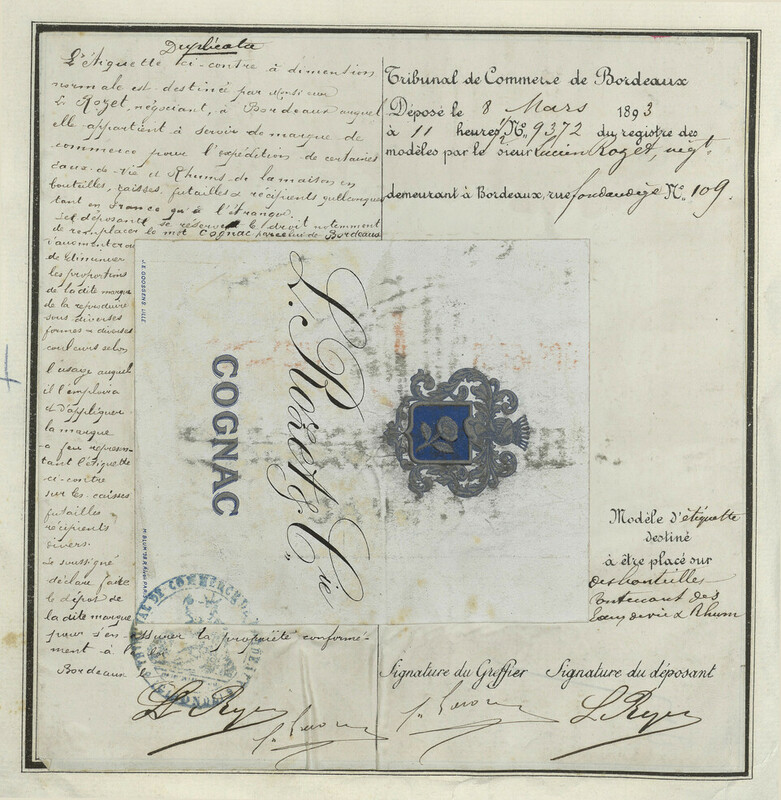 Duplicata
L'Etiquette ci-contre à dimention
normale est destinée par Monsieur
L. Rozet, négociant, à Bordeaux auquel
elle appartient à servir de marque de
commerce pour l'expédition de certaines
eaux-de-vie et Rhums de la maison en
bouteilles, caisses, futailles & récipients quelconques
tant en France qu'à l'étranger.
Le déposant se réserve le droit notemment
de remplacer le mot Cognac par celui de Bordeaux
d'augmenter ou
de diminuer
les proportions
de la dite marque
de la reproduire
sous diverses
formes & diverses
couleurs selon
l'usage auquel
il l'emploiera
et d'appliquer
la marque
à feu représen-
tant l'étiquette
ci-contre
sur les caisses
futailles
récipients
divers.
Le soussigné
déclare faire
le dépôt de
la dite marque
pour s'en assurer la propriété conformé-
ment à la loi
Bordeaux
Tribunal de Commerce de Bordeaux
Déposé le 8 Mars 1893
à 11 heures, N° 9372 du registre des
modèles par le sieur Lucien Rozet, négt.
demeurant à Bordeaux, rue fondaudège N° 109.
J.E. GOOSSENS LILLE
COGNAC
L. Rozet & Cie
Modèle d'étiquette
destiné
à être placé sur
des bouteilles
contenant des
Eaux de vie & Rhum
TRIBUNAL DE COMMERCE DE
Signature du Greffier Signature du déposant